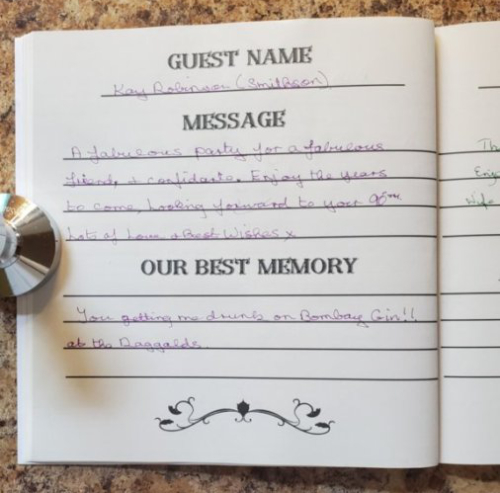 GUEST NAME
Kay Robinson (Smithson)
MESSAGE
A fabulous party for a fabulous
friend, & confidante. Enjoy the years
to come, looking forward to your 90th
Lots of Love & Best Wishes x
OUR BEST MEMORY
You getting me drunk on Bombay Gin!!
at the Raggalds.
Th
Enj
wife